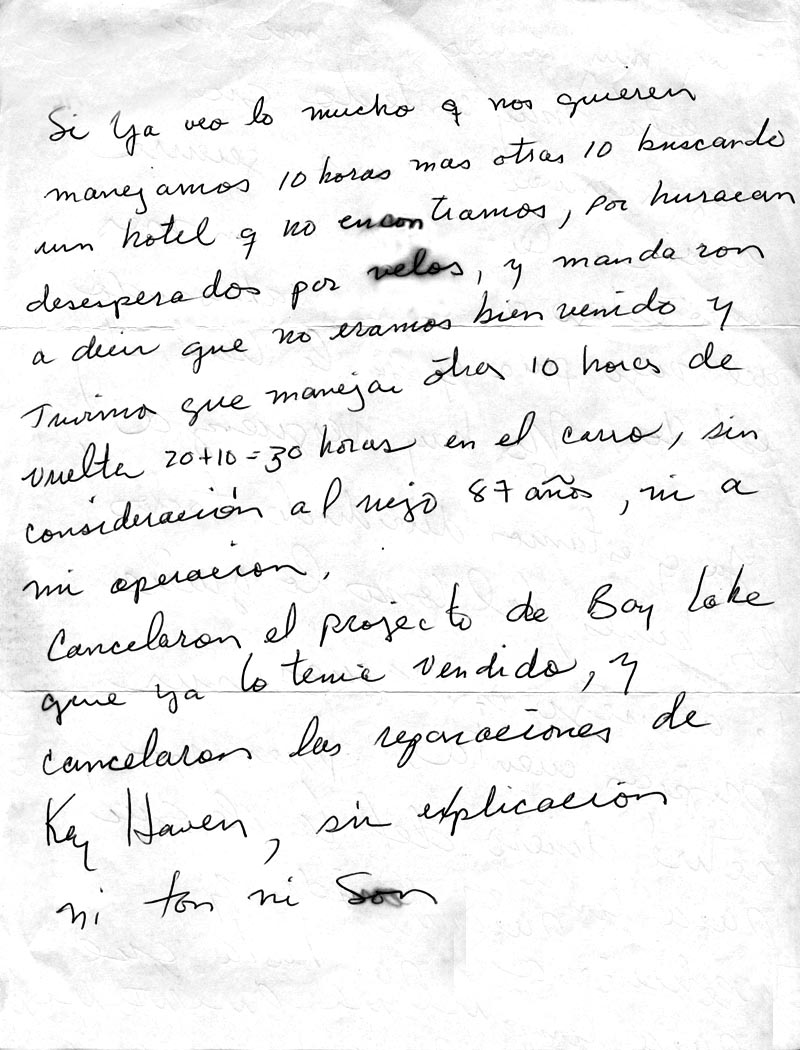 Si Ya veo lo mucho q nos quieren
manejamos 10 horas mas otras 10 buscando
un hotel q no encontramos, por huracan
desesperados por velos, y mandaron
a decir que no eramos bienvenido y
Tuvimo que manejar otras 10 horas de
vuelta 20+10=30 horas en el carro, sin
consideración al viejo 87 años, ni a
mi operacion,
Cancelaron el projecto de Bay Lake
que ya lo tenia vendido, y
cancelaron las reparaciones de
Key Haven, sin explicación
ni ton ni son